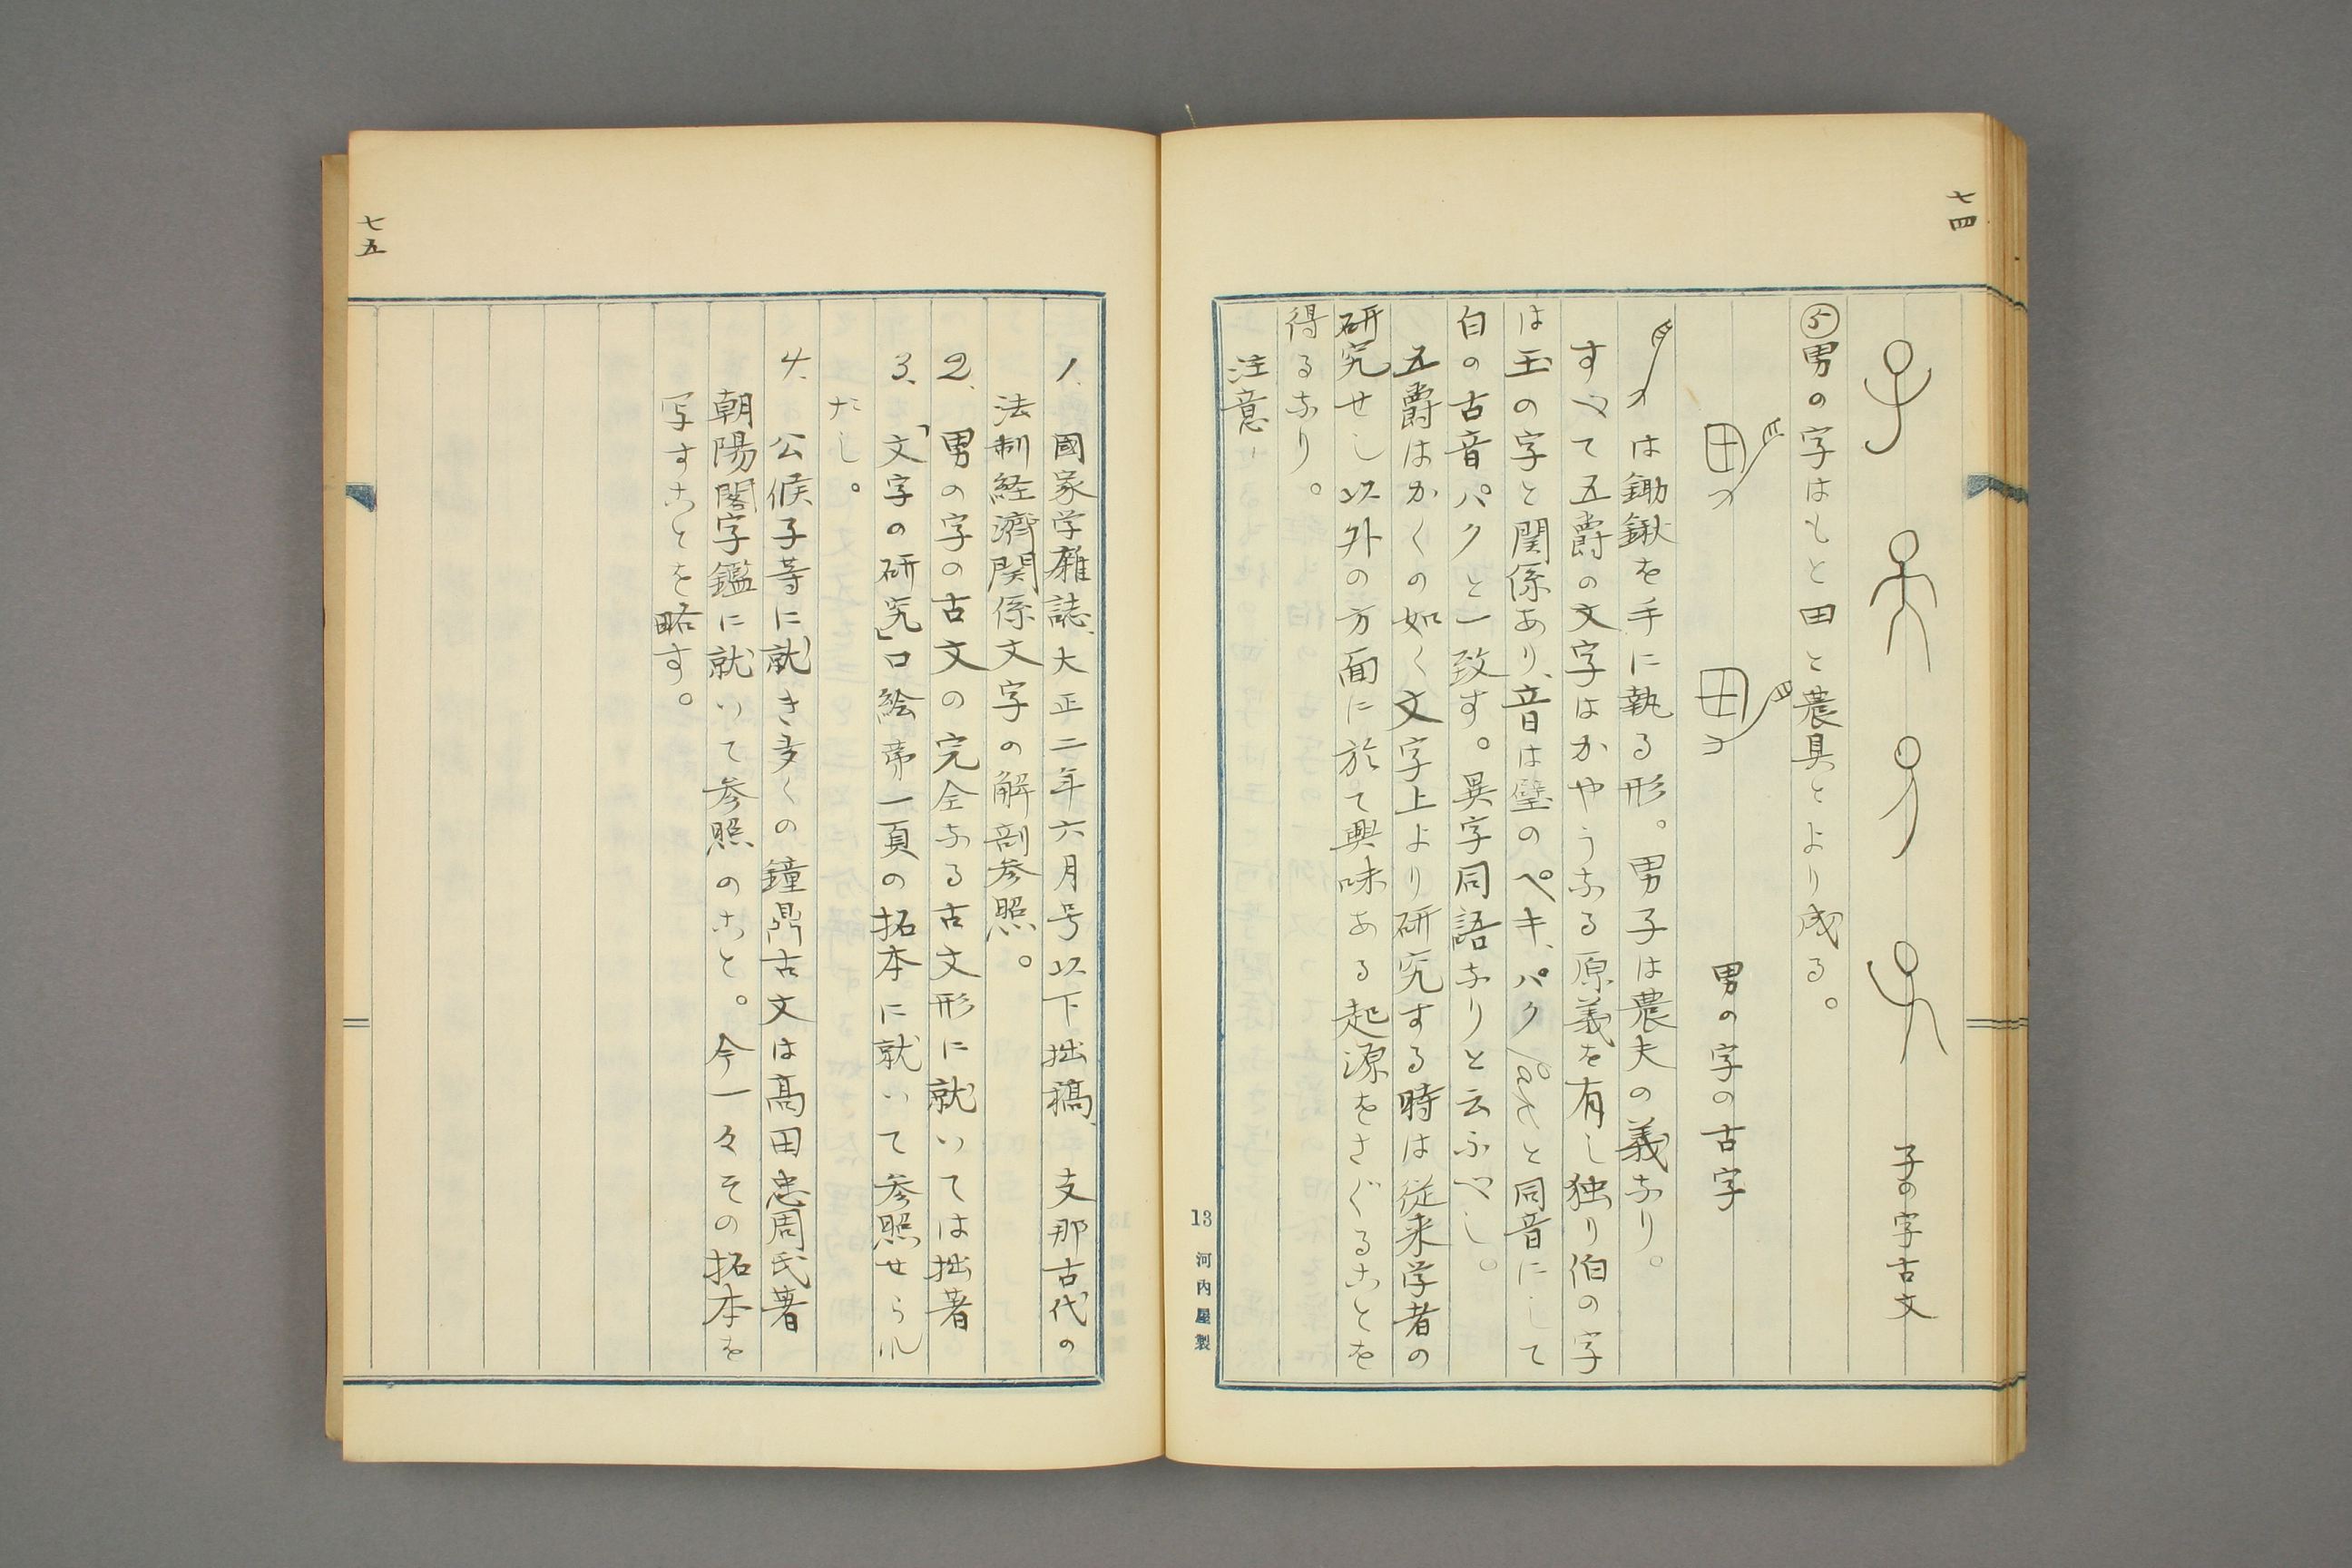 七四
子の字古文
⑤男の字はもと田と農具とより成る。
男の字の古字
は鋤鍬を手に執る形。男子は農夫の義なり。
すべて五爵の文字はかやうなる原義を有し独り伯の字
は玉の字と関係あり、音は璧のペキ、パクと同音にして
白の古音パクと一致す。異字同語なりと云ふべし。
五爵はかくの如く文字上より研究する時は従来学者の
研究せし以外の方面に於て興味ある起源をさぐることを
得るなり。
注意
13 河内屋製
1、國家学雜誌、大正二年六月号以下拙稿、支那古代の
法制経済関係文字の解剖参照。
2、男の字の古文の完全なる古文形に就いては拙著
3、「文字の研究」口絵第一頁の拓本に就いて参照せられ
たし。
4、公候子等に就き多くの鐘鼎古文は高田忠周氏著
朝陽閣字鑑に就いて参照のこと。今一々その拓本を
写すことを略す。
七五